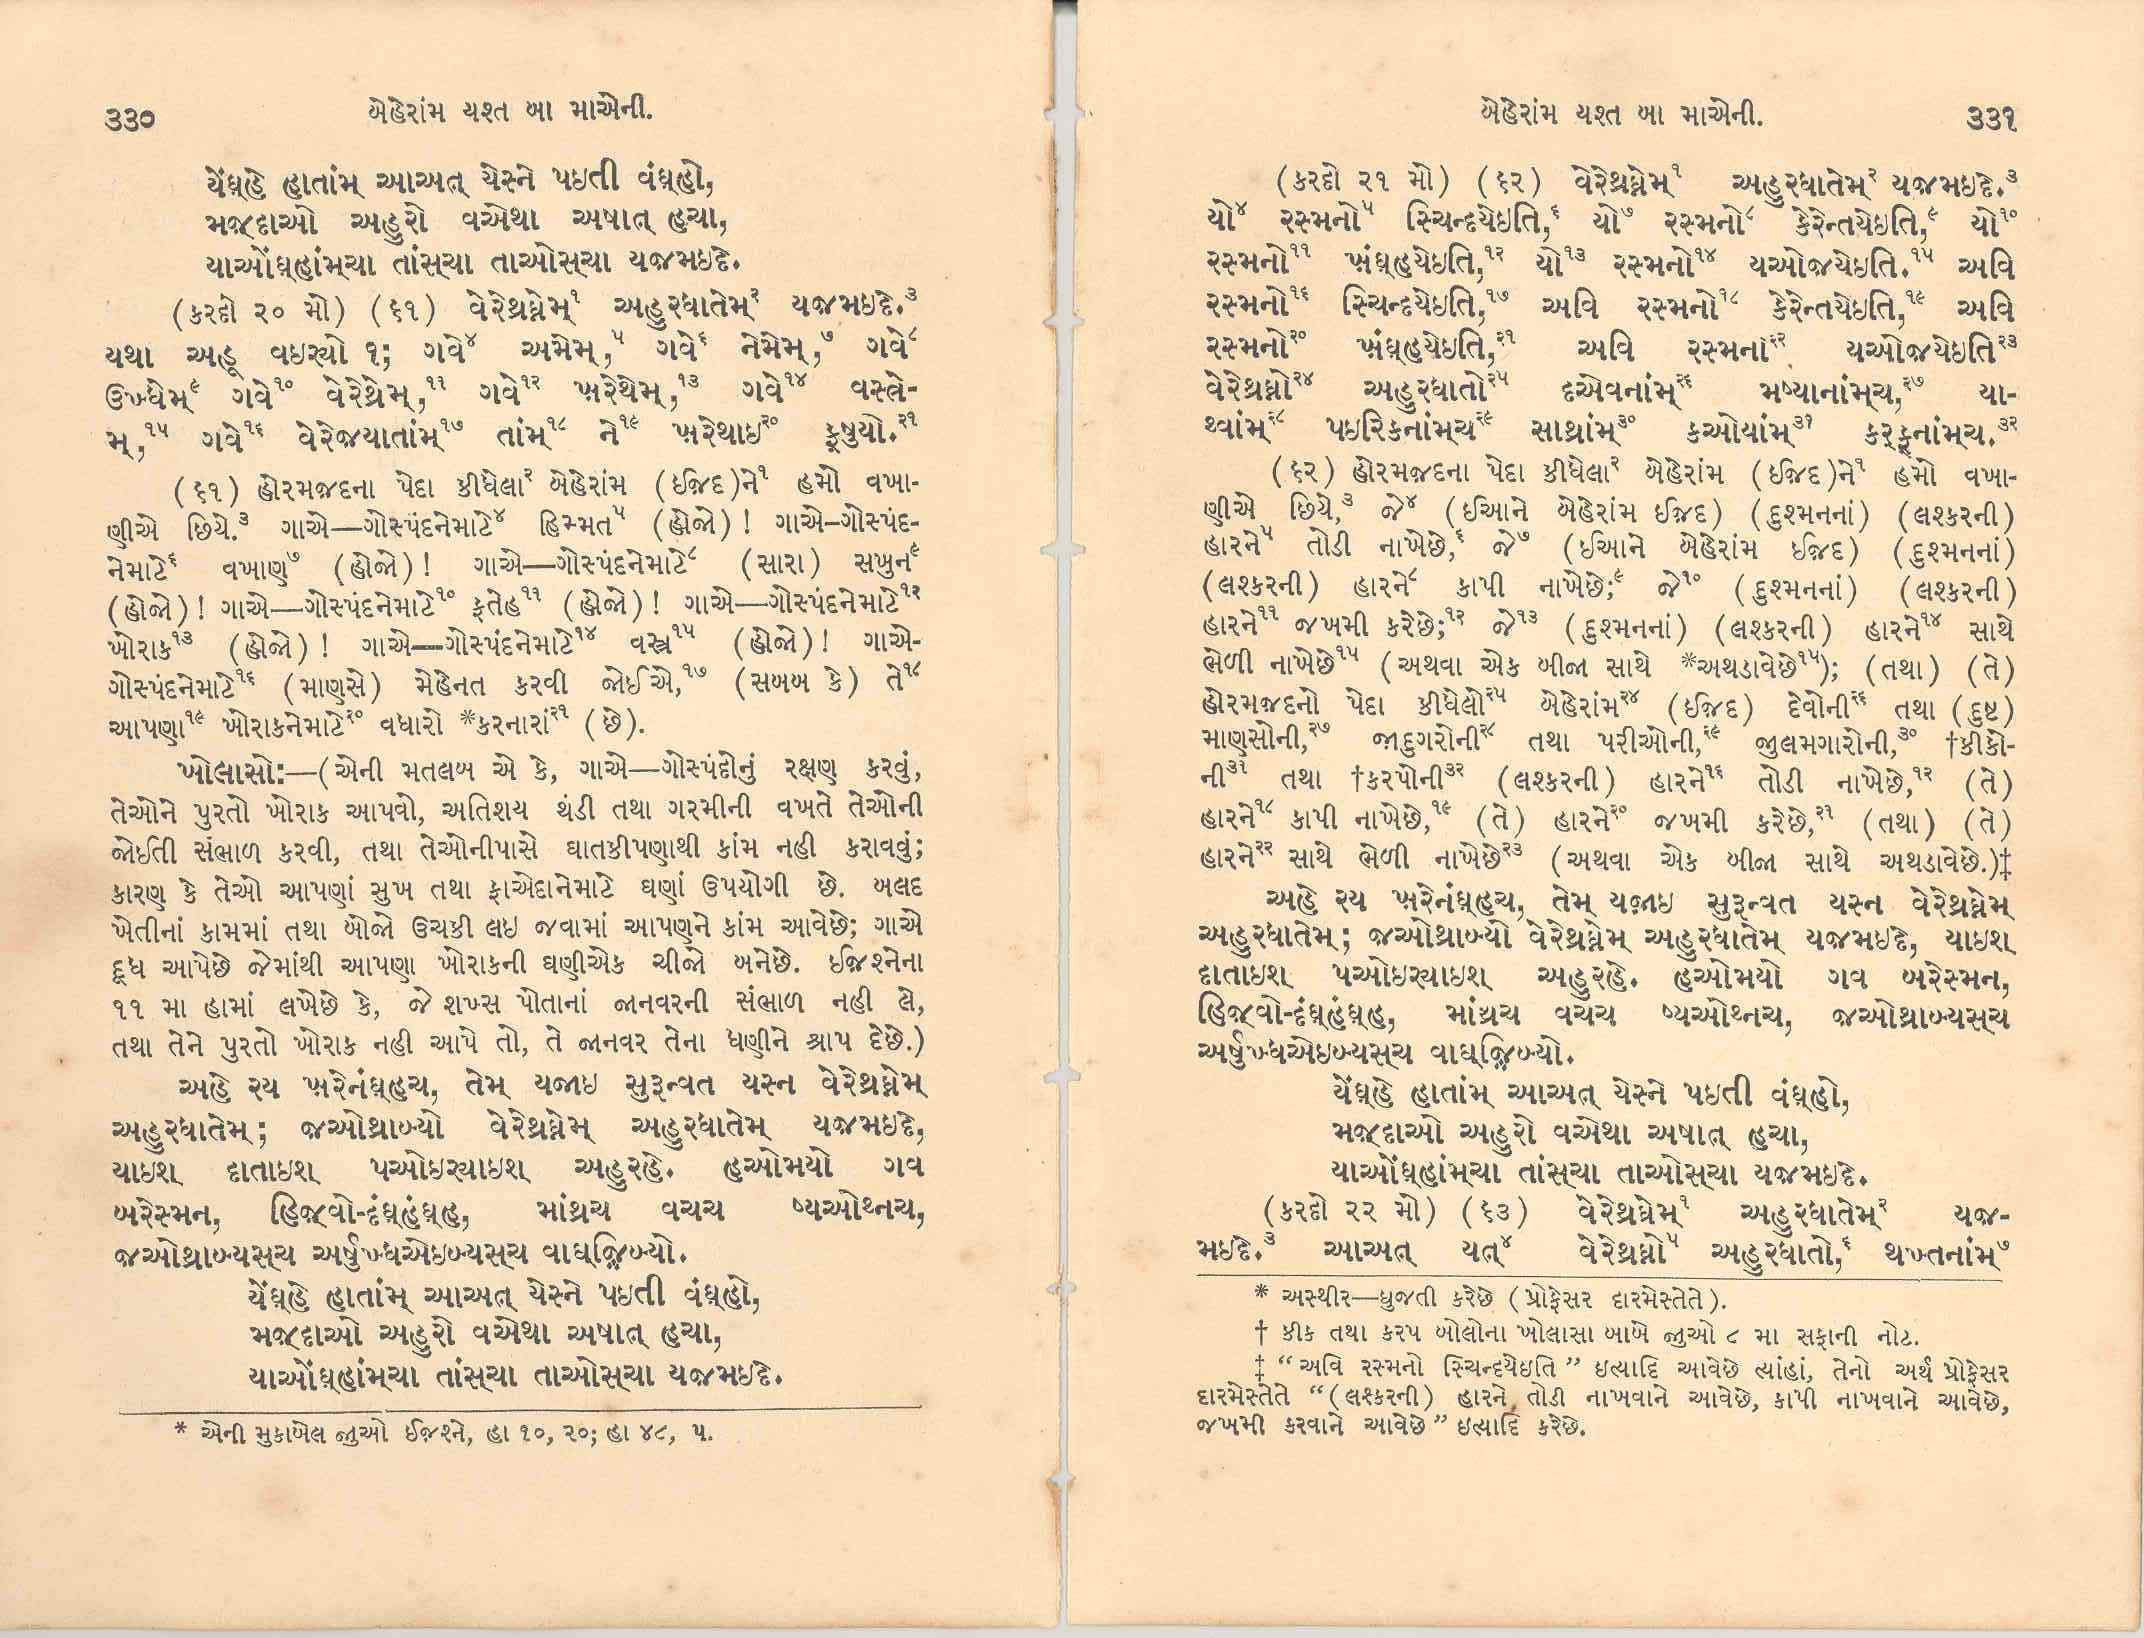 ૩૩૦
બેહેરાંમ યશ્ત બા માએની.
યેંઘ્‌હે હાતાંમ્ આઅત્ યેસ્ને પઇતી વંઘ્‌હો,
મઝ્‌દાઓ અહુરો વએથા અષાત્ હચા,
યાઓંઘ્‌હાંમ્‌ચા તાંસ્‌ચા તાઓસ્‌ચા યઝમઇદે.
(કરદો ૨૦ મો) (૬૧) વેરેથ્રઘ્નેમ્૧ અહુરધાતેમ્૨ યઝમઇદે.૩
યથા અહૂ વઇરયો ૧; ગવે૪ અમેમ્,૫ ગવે૬ નેમેમ્,૭ ગવે૮
ઉખ્ધેમ્૯ ગવે૧૦ વેરેથ્રેમ્,૧૧ ગવે૧૨ ખ઼રેથેમ્,૧૩ ગવે૧૪ વસ્ત્રે-
મ્,૧૫ ગવે૧૬ વેરેજયાતાંમ્૧૭ તાંમ્૧૮ ને૧૯ ખ઼રેથાઇ૨૦ ફ્ષુયો.૨૧
(૬૧) હોરમઝદના પેદા કીધેલા૨ બેહેરાંમ (ઈઝદ)ને૧ હમો વખા-
ણીએ છિયે.૩ ગાએ—ગોસ્પંદનેમાટે૪ હિમ્મત૫ (હોજો)! ગાએ-ગોસ્પંદ-
નેમાટે૬ વખાણ૭ (હોજો)! ગાએ—ગોસ્પંદનેમાટે૮ (સારા) સખુન૯
(હોજો)! ગાએ—ગોસ્પંદનેમાટે૧૦ ફતેહ૧૧ (હોજો)! ગાએ—ગોસ્પંદનેમાટે૧૨
ખોરાક૧૩ (હોજો)! ગાએ—ગોસ્પંદનેમાટે૧૪ વસ્ત્ર૧૫ (હોજો)! ગાએ-
ગોસ્પંદનેમાટે૧૬ (માણસે) મેહેનત કરવી જોઈએ,૧૭ (સબબ કે) તે૧૮
આપણા૧૯ ખોરાકનેમાટે૨૦ વધારો *કરનારાં૨૧ (છે).
ખોલાસો:—(એની મતલબ એ કે, ગાએ—ગોસ્પંદોનું રક્ષણ કરવું,
તેઓને પુરતો ખોરાક આપવો, અતિશય થંડી તથા ગરમીની વખતે તેઓની
જોઈતી સંભાળ કરવી, તથા તેઓનીપાસે ઘાતકીપણાથી કાંમ નહી કરાવવું;
કારણ કે તેઓ આપણાં સુખ તથા ફાએદાનેમાટે ઘણાં ઉપયોગી છે. બલદ
ખેતીનાં કામમાં તથા બોજો ઉચકી લઇ જવામાં આપણને કાંમ આવેછે; ગાએ
દૂધ આપેછે જેમાંથી આપણા ખોરાકની ઘણીએક ચીજો બનેછે. ઈજશ્નેના
૧૧ મા હામાં લખેછે કે, જે શખ્સ પોતાનાં જાનવરની સંભાળ નહી લે,
તથા તેને પુરતો ખોરાક નહી આપે તો, તે જાનવર તેના ધણીને શ્રાપ દેછે.)
અહે રય ખ઼રેનંઘ્‌હચ, તેમ્ યજાઇ સુરૂન્વત યસ્ન વેરેથ્રઘ્નેમ્
અહુરધાતેમ્; જઓથ્રાબ્યો વેરેથ્રઘ્નેમ્ અહુરધાતેમ્ યઝમઇદે,
યાઇશ્ દાતાઇશ્ પઓઇરયાઇશ્ અહુરહે. હઓમયો ગવ
બરેસ્મન, હિઝ્‌વો-દંઘ્‌હંઘ્‌હ, માંથ્રચ વચચ ષ્યઓથ્નચ,
જઓથ્રાબ્યસ્‌ચ અર્ષુખ્ધએઇબ્યસ્‌ચ વાઘ્‌ઝિબ્યો.
યેંઘ્‌હે હાતાંમ્ આઅત્ યેસ્ને પઇતી વંઘ્‌હો,
મઝ્‌દાઓ અહુરો વએથા અષાત્ હચા,
યાઓંઘ્‌હાંમ્‌ચા તાંસ્‌ચા તાઓસ્‌ચા યઝમઇદે.
* એની મુકાબેલ જુઓ ઈઝશ્ને, હા ૧૦, ૨૦; હા ૪૮, ૫.
બેહેરાંમ યશ્ત બા માએની.
૩૩૧
(કરદો ૨૧ મો) (૬૨) વેરેથ્રઘ્નેમ્૧ અહુરધાતેમ્૨ યઝમઇદે.૩
યો૪ રસ્મનો૫ સ્ચિન્દયેઇતિ,૬ યો૭ રસ્મનો૮ કેરેન્તયેઇતિ,૯ યો૧૦
રસ્મનો૧૧ ખ઼ંઘ્‌હયેઇતિ,૧૨ યો૧૩ રસ્મનો૧૪ યઓજયેઇતિ.૧૫ અવિ
રસ્મનો૧૬ સ્ચિન્દયેઇતિ,૧૭ અવિ રસ્મનો૧૮ કેરેન્તયેઇતિ,૧૯ અવિ
રસ્મનો૨૦ ખ઼ંઘ્‌હયેઇતિ,૨૧ અવિ રસ્મનો૨૨ યઓજયેઇતિ૨૩
વેરેથ્રઘ્નો૨૪ અહુરધાતો૨૫ દએવનાંમ્૨૬ મષ્યાનાંમ્‌ચ,૨૭ યા-
થ્વાંમ્૨૮ પઇરિકનાંમ્‌ચ૨૯ સાથ્રાંમ્૩૦ કઓયાંમ્૩૧ કરફ્નાંમ્‌ચ.૩૨
(૬૨) હોરમઝદના પેદા કીધેલા૨ બેહેરાંમ (ઈઝદ)ને૧ હમો વખા-
ણીએ છિયે,૩ જે૪ (ઈઆને બેહેરાંમ ઈઝદ) (દુશ્મનનાં) (લશ્કરની)
હારને૫ તોડી નાખેછે,૬ જે૭ (ઈઆને બેહેરાંમ ઈઝદ) (દુશ્મનનાં)
(લશ્કરની) હારને૮ કાપી નાખેછે;૯ જે૧૦ (દુશ્મનનાં) (લશ્કરની)
હારને૧૧ જખમી કરેછે;૧૨ જે૧૩ (દુશ્મનનાં) (લશ્કરની) હારને૧૪ સાથે
ભેળી નાખેછે૧૫ (અથવા એક બીજા સાથે *અથડાવેછે૧૫); (તથા) (તે)
હોરમઝદનો પેદા કીધેલો૨૫ બેહેરાંમ૨૪ (ઈઝદ) દેવોની૨૬ તથા (દુષ્ટ)
માણસોની,૨૭ જાદુગરોની૨૮ તથા પરીઓની,૨૯ જુલમગારોની,૩૦ †કીકો-
ની૩૧ તથા †કરપોની૩૨ (લશ્કરની) હારને૧૬ તોડી નાખેછે,૧૨ (તે)
હારને૧૮ કાપી નાખેછે,૧૯ (તે) હારને૨૦ જખમી કરેછે,૨૧ (તથા) (તે)
હારને૨૨ સાથે ભેળી નાખેછે૨૩ (અથવા એક બીજા સાથે અથડાવેછે.)‡
અહે રય ખ઼રેનંઘ્‌હચ, તેમ્ યજાઇ સુરૂન્વત યસ્ન વેરેથ્રઘ્નેમ્
અહુરધાતેમ્; જઓથ્રાબ્યો વેરેથ્રઘ્નેમ્ અહુરધાતેમ્ યઝમઇદે, યાઇશ્
દાતાઇશ્ પઓઇરયાઇશ્ અહુરહે. હઓમયો ગવ બરેસ્મન,
હિઝ્‌વો-દંઘ્‌હંઘ્‌હ, માંથ્રચ વચચ ષ્યઓથ્નચ, જઓથ્રાબ્યસ્‌ચ
અર્ષુખ્ધએઇબ્યસ્‌ચ વાઘ્‌ઝિબ્યો.
યેંઘ્‌હે હાતાંમ્ આઅત્ યેસ્ને પઇતી વંઘ્‌હો,
મઝ્‌દાઓ અહુરો વએથા અષાત્ હચા,
યાઓંઘ્‌હાંમ્‌ચા તાંસ્‌ચા તાઓસ્‌ચા યઝમઇદે.
(કરદો ૨૨ મો) (૬૩) વેરેથ્રઘ્નેમ્૧ અહુરધાતેમ્૨ યઝ-
મઇદે.૩ આઅત્ યત્૪ વેરેથ્રઘ્નો૫ અહુરધાતો,૬ થખ્તનાંમ્૭
* અસ્થીર—ધ્રુજતી કરેછે (પ્રોફેસર દારમેસ્તેતે).
† કીક તથા કરપ બોલોના ખોલાસા બાબે જુઓ ૮ મા સફાની નોટ.
‡ “અવિ રસ્મનો સ્ચિન્દયેઇતિ” ઇત્યાદિ આવેછે ત્યાંહાં, તેનો અર્થ પ્રોફેસર
દારમેસ્તેતે “(લશ્કરની) હારને તોડી નાખવાને આવેછે, કાપી નાખવાને આવેછે,
જખમી કરવાને આવેછે” ઇત્યાદિ કરેછે.